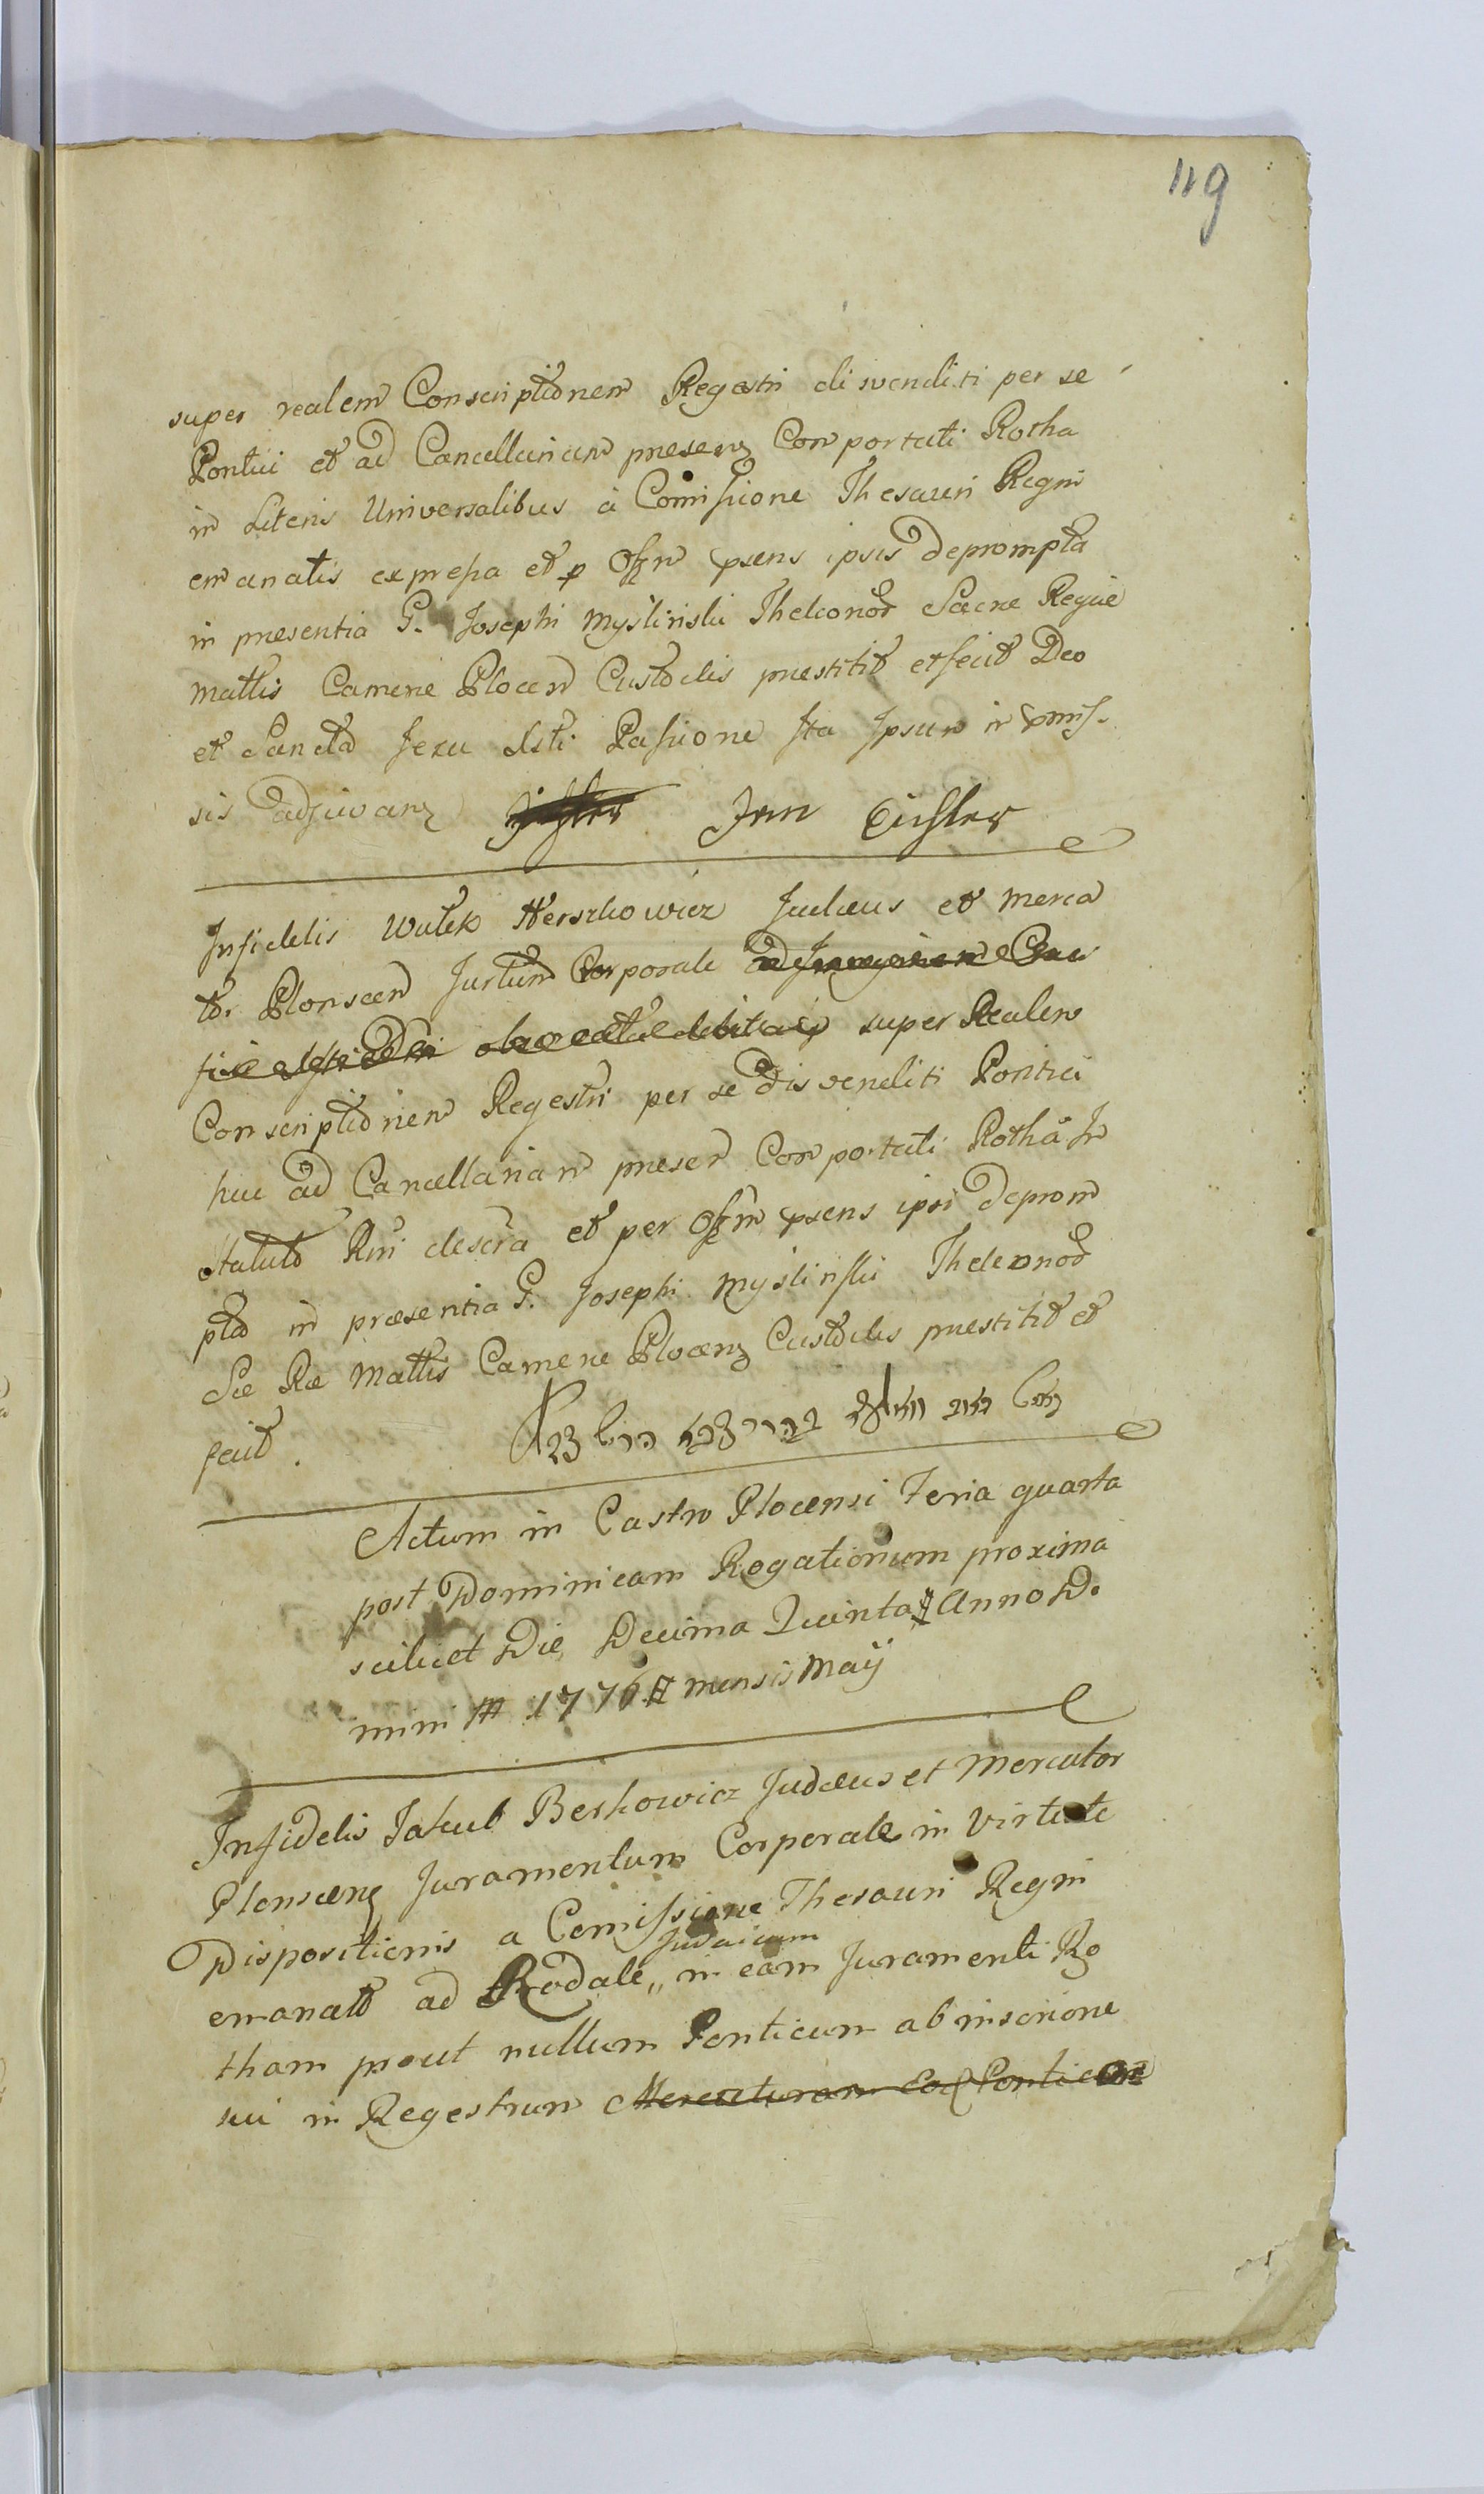 119
super realem Conscriptionem Regestri disvenditi per se
Pontici et ad Cancellariam presenz Comportati Rotha
in Literis Universalibus à Comissione Thesauri Regni
emanatis expressa et p Offm psens ipsis deprompta
in presentia G. Josephi Myslinski Theleonod Sacrae Regiae
Mattis Camerae Plocen Custodis praestitit et fecit Deo
et Sancta Jezu Xsti Passione Ita Ipsum in pmis
sis adjuvanz Jan Eichler
Infidelis Wulek Herszkowicz Judaeus et Merca
tr. Plonscen Jurtum Corporale ad Imaginem Cruci
fixi super Realem
Conscriptionem Regestri per se disvenditi Pontici
huc ad Cancellariam presen Comportati Rothâ In
Statuto Rni descra et per Offm psens ipsi deprom
pta in praesentia G. Josephi Myslinski Theleonod
Sae Rae Mattis Camerae Plocenz Custodis praestitit et
fecit.
Actum in Castro Plocensi Feria quarta
post Dominicam Rogationum proxima
scilicet Die Decima Quinta Anno Do
mini 1776 mensis Maÿ
Infidelis Jakub Berkowicz Judaeus et Mercator
Plonscenz Juramentum Corporale in Virtute
Dispositionis a Comissione Thesauri Regni
Judaicum
emanato ad Rodale „ in eam Juramenti Ro
tham prout nullum Ponticum ab inscrione
sui in Regestrum Mercaturam Eoq Ponticum